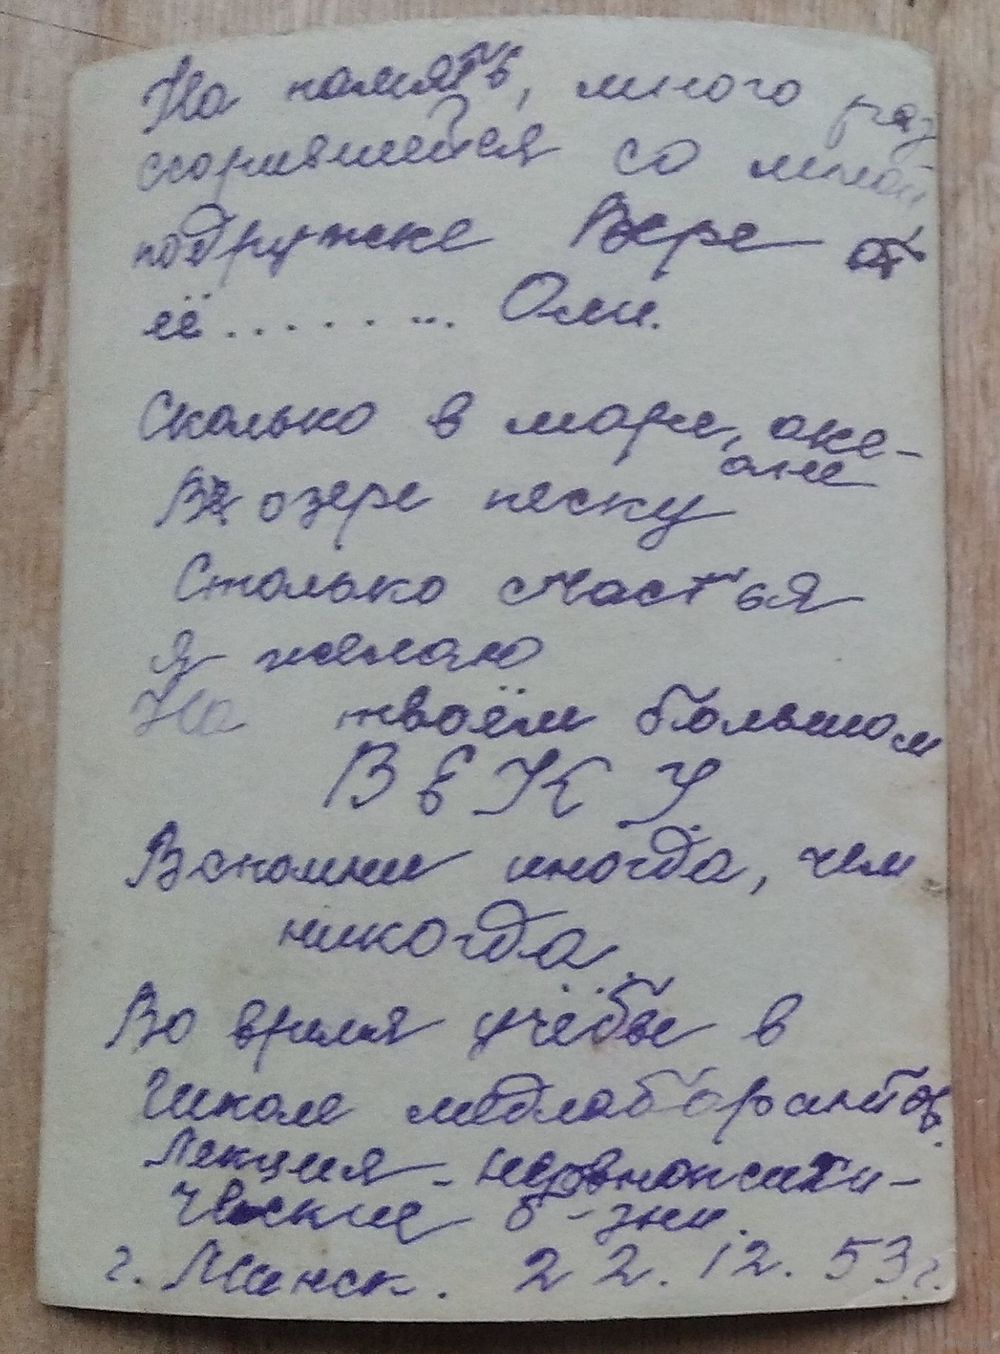 На память, много раз
ссорившейся со мной
подружке Вере от
её......... Оли.
Сколько в море, оке-
ане
В озере песку
Столько счастья
я желаю
На твоём большом
ВЕКУ.
Вспомни иногда, чем
никогда.
Во время учёбы в
школе медлаборантов.
Лекция - нервнопсихи-
ческие б-зни.
г. Минск. 22.12.53г.